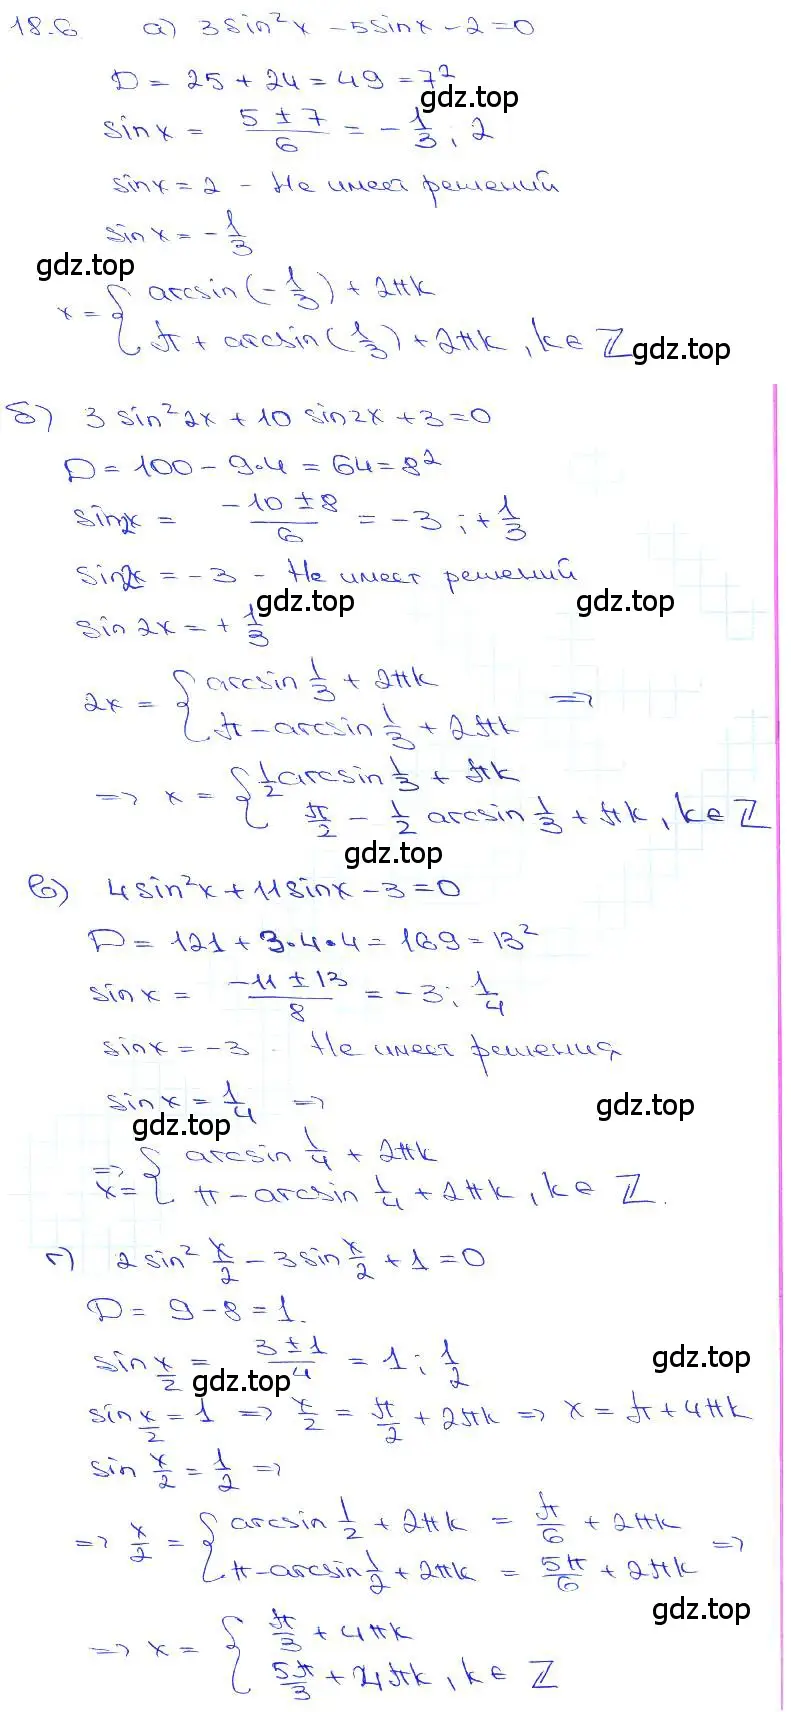 18.6 а) 3sin²x - 5sinx - 2 = 0
D = 25 + 24 = 49 = 7²
gdz.top
sinx = (5 ± 7)/6 = -1/3 ; 2
sinx = 2 - Не имеет решений
sinx = -1/3
gdz.top
x = { arcsin(-1/3) + 2πk
π + arcsin(1/3) + 2πk, k ∈ Z
gdz.top
б) 3 sin²2x + 10 sin2x + 3 = 0
D = 100 - 9·4 = 64 = 8²
sin2x = (-10 ± 8)/6 = -3 ; +1/3
sin2x = -3 - Не имеет решений
gdz.top gdz.top
sin 2x = +1/3
2x = { arcsin 1/3 + 2πk
π - arcsin 1/3 + 2πk =>
=> x = { 1/2 arcsin 1/3 + πk
π/2 - 1/2 arcsin 1/3 + πk, k ∈ Z
gdz.top
в) 4sin²x + 11sinx - 3 = 0
D = 121 + 3·4·4 = 169 = 13²
sin x = (-11 ± 13)/8 = -3 ; 1/4
sinx = -3 - Не имеет решения
sin x = 1/4 =>
gdz.top
gdz.top
=> x = { arcsin 1/4 + 2πk
π - arcsin 1/4 + 2πk, k ∈ Z.
г) 2 sin² x/2 - 3 sin x/2 + 1 = 0
D = 9 - 8 = 1.
sin x/2 = (3 ± 1)/4 = 1 ; 1/2
gdz.top
gdz.top
sin x/2 = 1 => x/2 = π/2 + 2πk => x = π + 4πk
sin x/2 = 1/2 =>
=> x/2 = { arcsin 1/2 + 2πk = π/6 + 2πk
π - arcsin 1/2 + 2πk = 5π/6 + 2πk =>
gdz.top
=> x = { π/3 + 4πk
5π/3 + 4πk, k ∈ Z